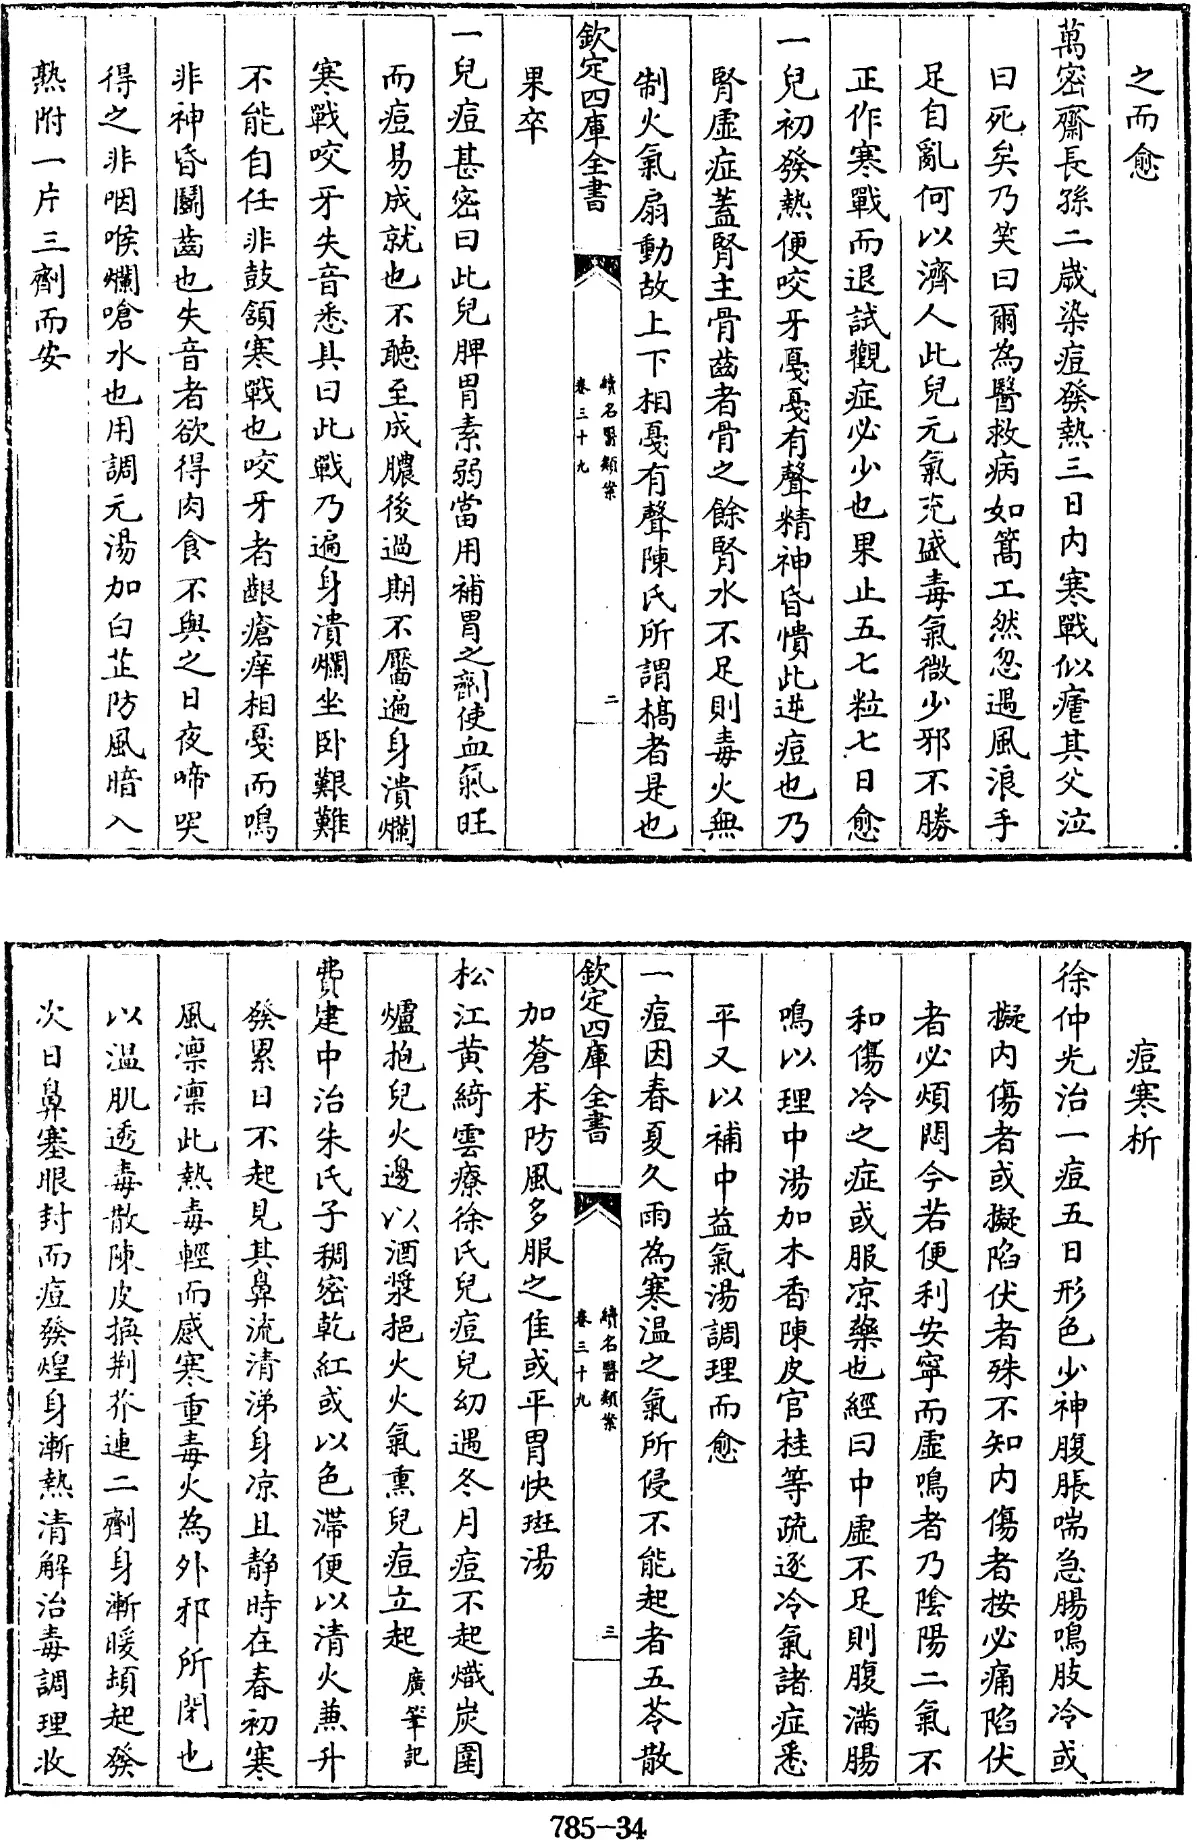 之而愈
萬密齋長孫二歲染痘發熱三日内寒戰似瘧其父泣
曰死矣乃笑曰爾為醫救病如篙工然忽遇風浪手
足自亂何以濟人此兒元氣充盛毒氣微少邪不勝
正作寒戰而退試觀症必少也果止五七粒七日愈
一兒初發熱便咬牙戛戛有聲精神昏憒此逆痘也乃
腎虛症蓋腎主骨齒者骨之餘腎水不足則毒火無
制火氣扇動故上下相戛有聲陳氏所謂槁者是也
欽定四庫全書
續名醫類案
卷三十九
二
果卒
一兒痘甚密曰此兒脾胃素弱當用補胃之劑使血氣旺
而痘易成就也不聽至成膿後過期不靨遍身潰爛
寒戰咬牙失音悉具曰此戰乃遍身潰爛坐卧艱難
不能自任非鼓頷寒戰也咬牙者齦瘡痒相戛而鳴
非神昏鬭齒也失音者欲得肉食不與之日夜啼哭
得之非咽喉爛嗆水也用調元湯加白芷防風暗入
熟附一片三劑而安
痘寒析
徐仲光治一痘五日形色少神腹脹喘急腸鳴肢冷或
擬内傷者或擬陷伏者殊不知内傷者按必痛陷伏
者必煩悶今若便利安寧而虛鳴者乃陰陽二氣不
和傷冷之症或服凉藥也經曰中虛不足則腹滿腸
鳴以理中湯加木香陳皮官桂等疏逐冷氣諸症悉
平又以補中益氣湯調理而愈
一痘因春夏久雨為寒温之氣所侵不能起者五苓散
欽定四庫全書
續名醫類案
卷三十九
三
加蒼术防風多服之佳或平胃快斑湯
松江黄綺雲療徐氏兒痘兒幼遇冬月痘不起熾炭圍
爐抱兒火邊以酒漿挹火火氣熏兒痘立起廣筆記
費建中治朱氏子稠密乾紅或以色滯便以清火兼升
發累日不起見其鼻流清涕身凉且靜時在春初寒
風凛凛此熱毒輕而感寒重毒火為外邪所閉也
以温肌透毒散陳皮換荆芥連二劑身漸暖頭起發
次日鼻塞眼封而痘發煌身漸熱清解治毒調理收
785-34